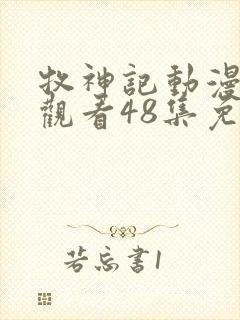 牧神記動漫
觀看48集免
若忘書1